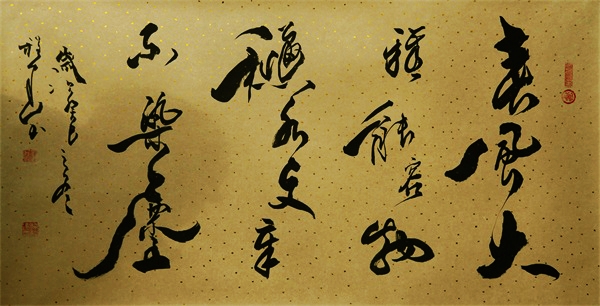 春風大
雅能容物
龝水文章
不染塵